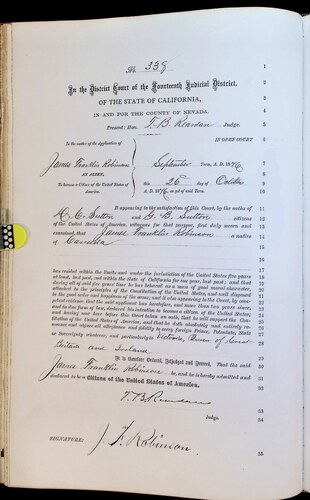 No 338
In the District Court of the Fourteenth Judicial District,
OF THE STATE OF CALIFORNIA,
IN AND FOR THE COUNTY OF NEVADA.
Present: Hon. T. B. Reardan Judge.
In the matter of the Application of
IN OPEN COURT
James Franklin Robinson
AN ALIEN,
To become a Citizen of the United States of
America.
September Term, A. D. 1876
this 26 day of October
A. D. 1876
It appearing to the satisfaction of this Court, by the oaths of
H. C. Sutton and G. B. Sutton citizens
of the United States of America, witnesses for that purpose, first duly sworn and
examined, that James Franklin Robinson a native
of Canada
has resided within the limits and under the jurisdiction of the United States five years
at least, last past, and within the State of California for one year, last past; and that
during all of said five years' time he has behaved as a man of good moral character,
attached to the principles of the Constitution of the United States, and well disposed
to the good order and happiness of the same; and it also appearing to the Court, by
competent evidence, that the said applicant has heretofore, and more than two years since,
and in due form of law, declared his intention to become a citizen of the United States,
and having now here before this Court taken an oath, that he will support the Constitution
of the United States of America, and that he doth absolutely and entirely renounce
and abjure all allegiance and fidelity to every foreign Prince, Potentate, State
or Sovereignty whatever, and particularly to Victoria, Queen of Great
Britain and Ireland
It is therefore Ordered, Adjudged and Decreed, That the said
James Franklin Robinson be, and he is hereby admitted and
declared to be a Citizen of the United States of America.
T. B. Reardan
Judge.
SIGNATURE: J. F. Robinson